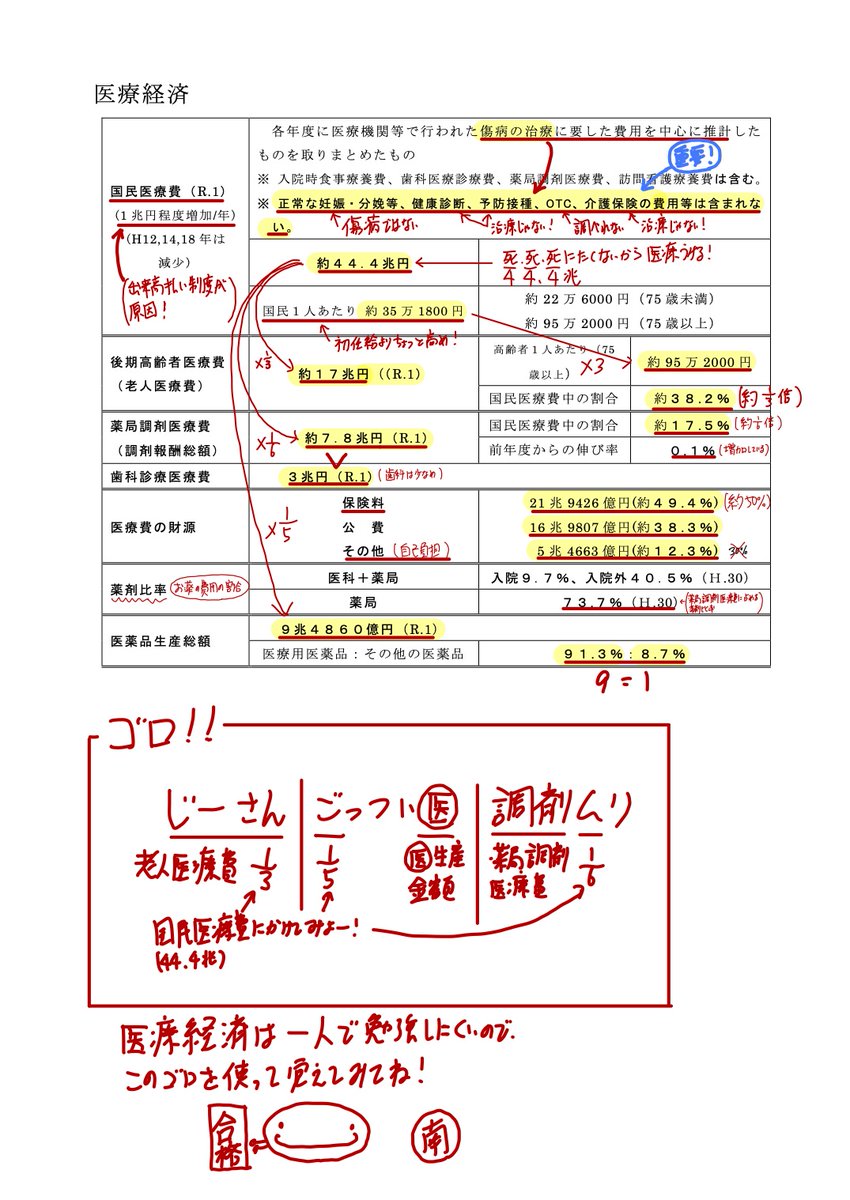 医療経済
国民医療費（R.1）
（1兆円程度増加/年）
（H12,14,18年は
減少）
出来高払い制度が
原因！
各年度に医療機関等で行われた傷病の治療に要した費用を中心に推計した
ものを取りまとめたもの
重要！
※ 入院時食事療養費、歯科医療診療費、薬局調剤医療費、訪問看護療養費は含む。
※ 正常な妊娠・分娩等、健康診断、予防接種、OTC、介護保険の費用等は含まれな
い。
傷病ではない
治療じゃない！
調べれない
治療じゃない！
約44.4兆円
死.死.死にたくないから医療うける！
4 4. 4兆
国民1人あたり 約35万1800円
初任給よりちょっと高め！
約22万6000円（75歳未満）
約95万2000円（75歳以上）
後期高齢者医療費
（老人医療費）
×1/3
約17兆円（(R.1）
高齢者1人あたり（75
歳以上）
×3
約95万2000円
国民医療費中の割合
約38.2%
(約1/3倍)
薬局調剤医療費
（調剤報酬総額）
×1/6
約7.8兆円（R.1）
国民医療費中の割合
約17.5%
(約1/6倍)
前年度からの伸び率
0.1%
(増加している)
歯科診療医療費
3兆円（R.1）
(歯科は少なめ)
医療費の財源
×1/5
保険料
21兆9426億円(約49.4%)
(約50%)
公　費
16兆9807億円(約38.3%)
その他
(自己負担)
5兆4663億円(約12.3%)
30%
薬剤比率
お薬の費用の割合
医科＋薬局
入院9.7%、入院外40.5%（H.30）
薬局
73.7%（H.30）
医薬品生産総額
9兆4860億円（R.1）
医療用医薬品：その他の医薬品
91.3%：8.7%
9 = 1
ゴロ!!
じーさん
ごっつい医
調剤ムリ
老人医療費 1/3
1/5
医生産
金額
薬局調剤
医療費
1/6
国民医療費にかけてみよー！
(44.4兆)
医療経済は一人で勉強しにくいので、
このゴロを使って覚えてみてね！
合格
南